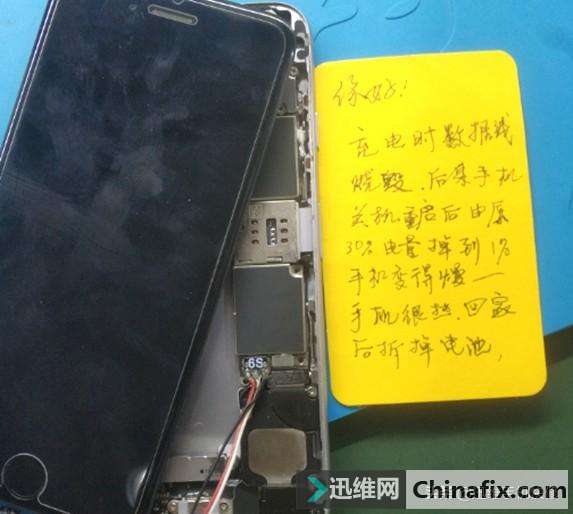 你好!
充电时数据线
烧毁.后来手机
关机重启后由原
30%电量掉到1%
手机变得慢一
手机很热.回家
后拆掉电池,
6S
迅维网
Chinafix.com